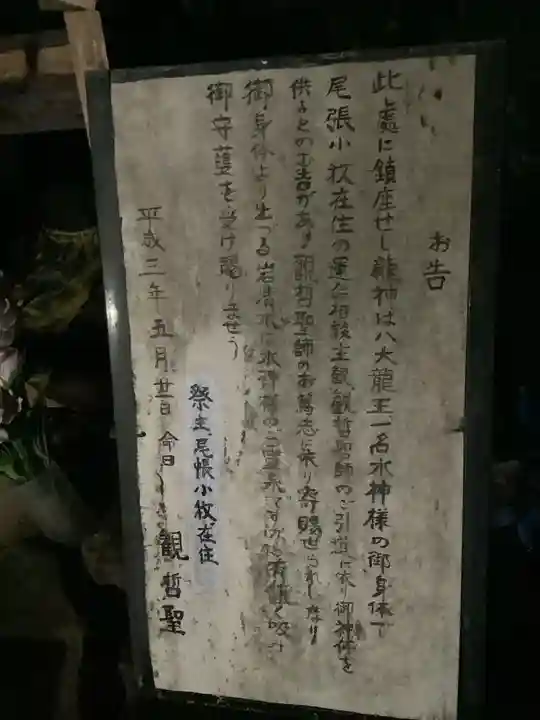 お告
此處に鎮座せし龍神は八大龍王一名水神様の御身体で
尾張小牧在住の運命相談主観観哲聖師のご引道に依り御神体を
供よとのお告があり観哲聖師のお篤志に依り寄賜せられしなり
御身体より出づる岩清水は水神様のご霊水です 有難く吸み
御守護を受け賜りませう
平成三年 五月廿日 今日
祭主 尾帳小牧在住
観哲聖